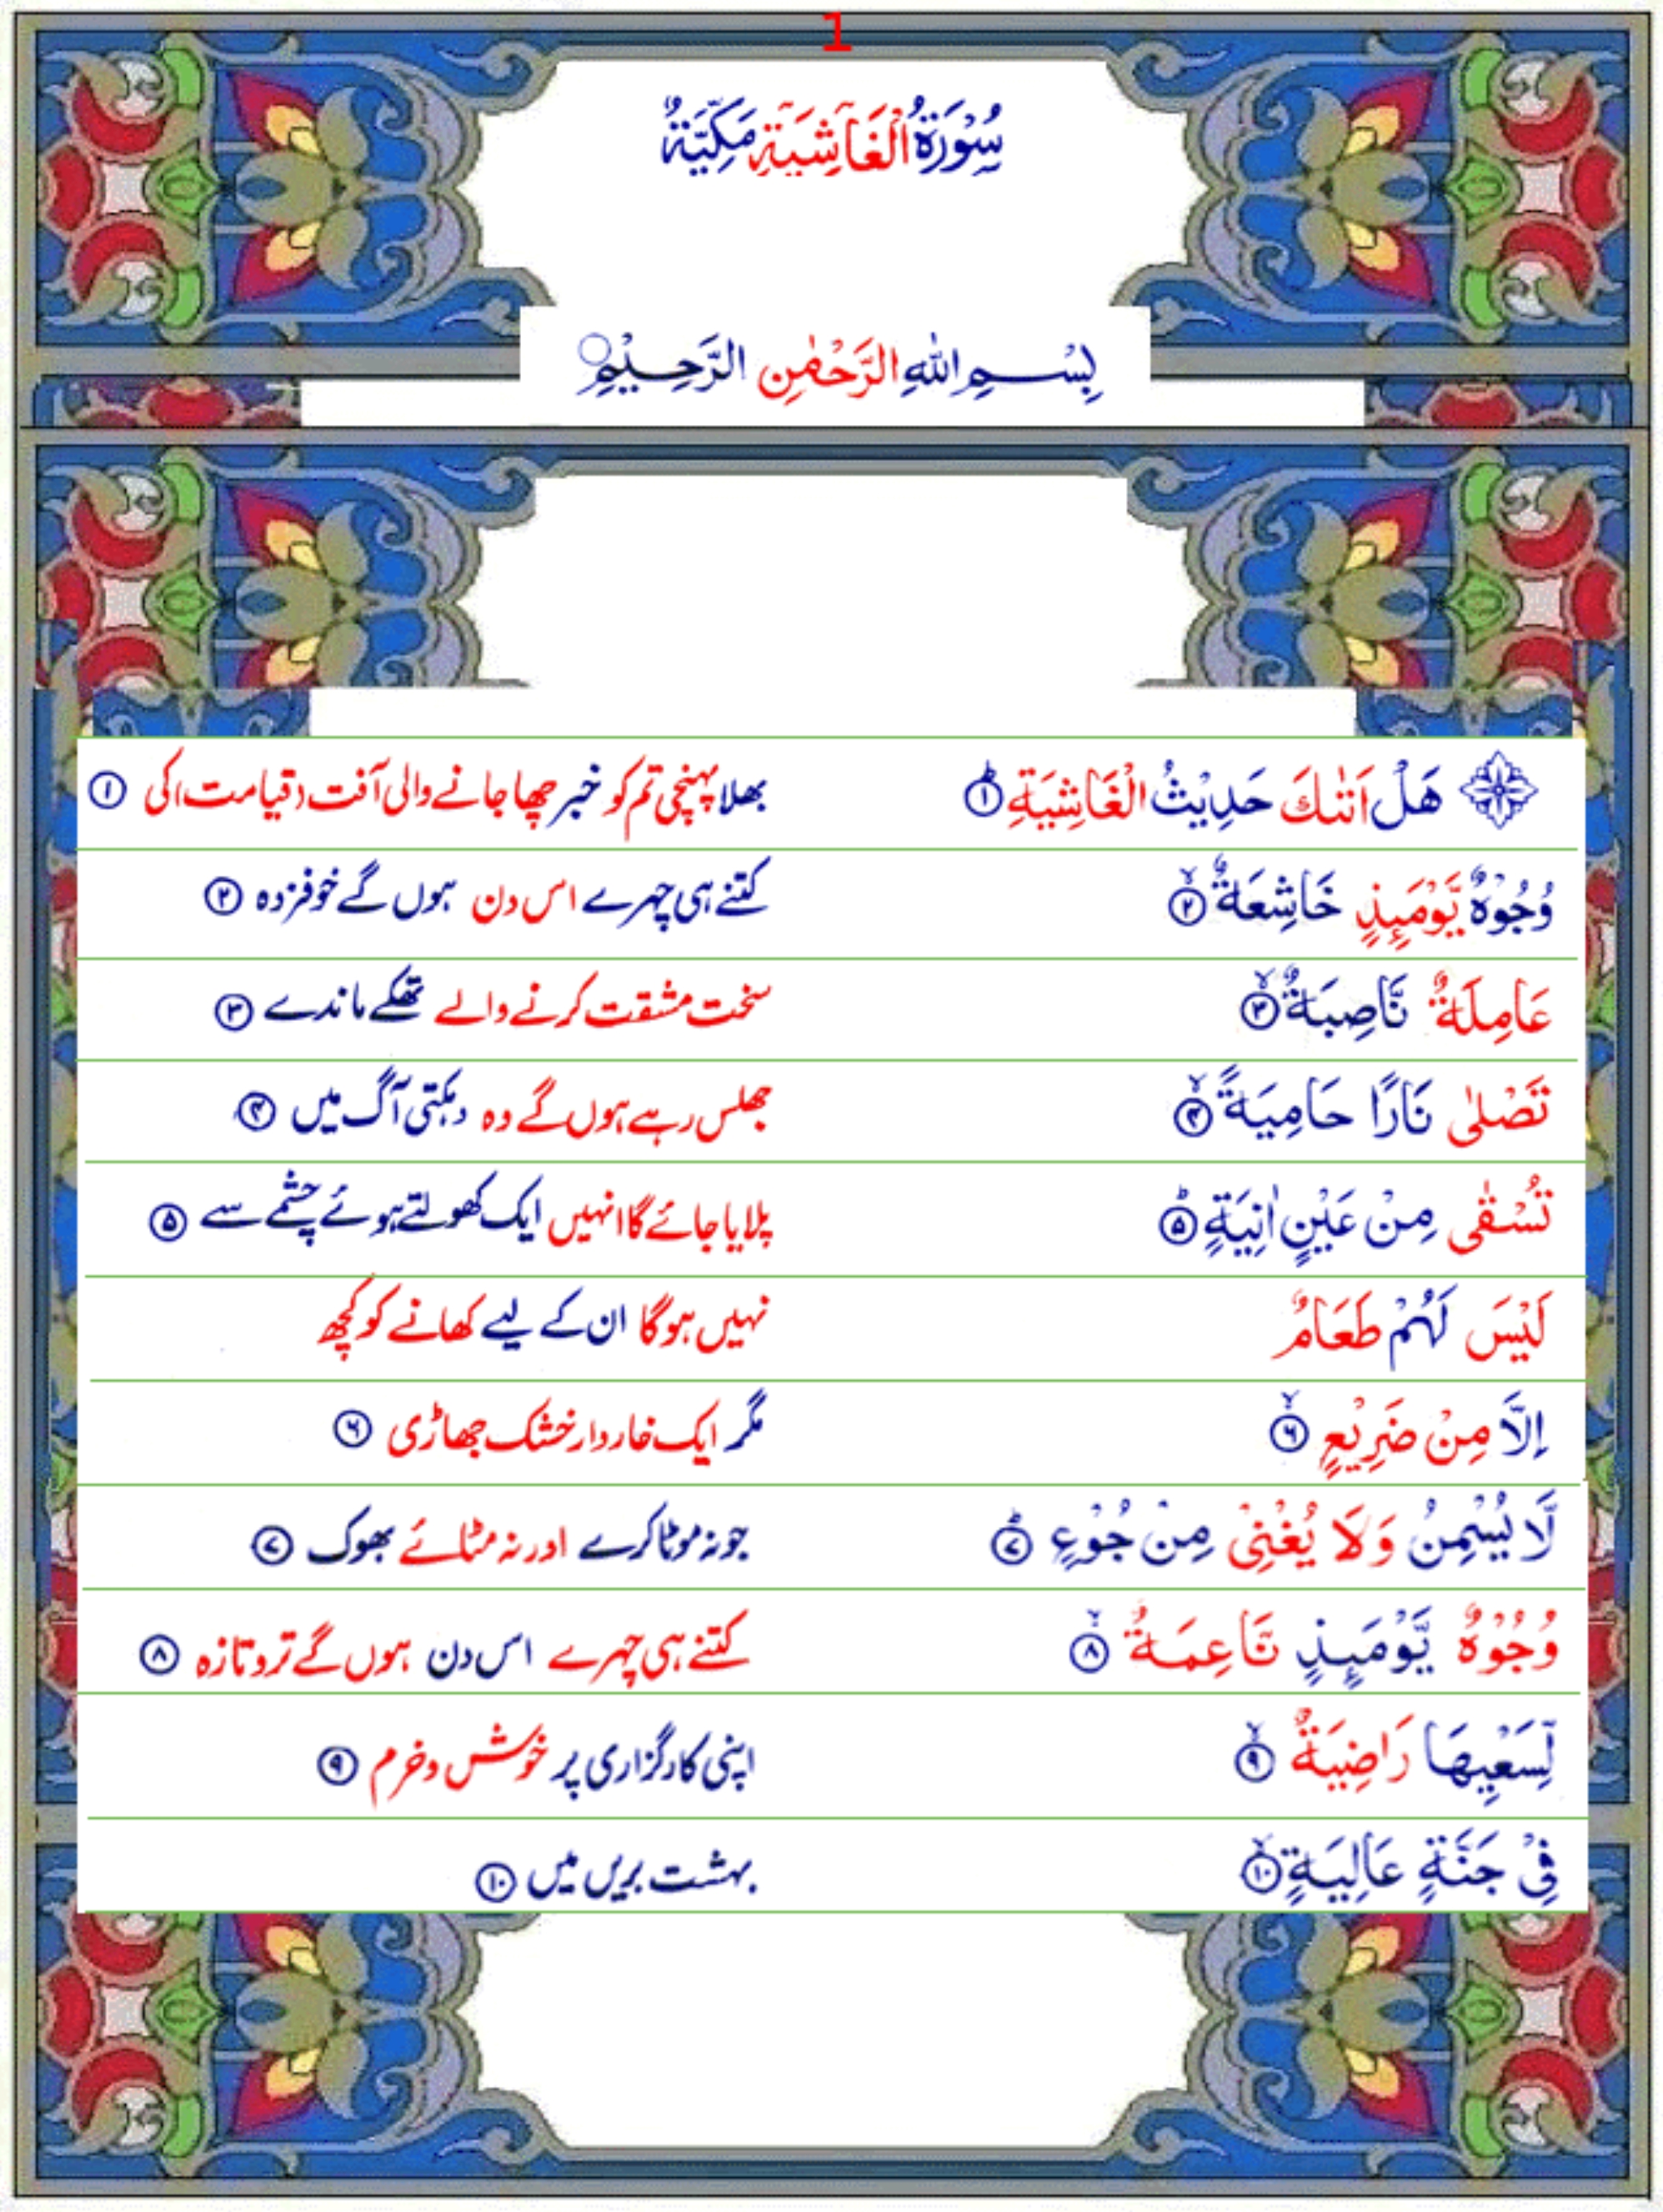 1
سُوْرَةُ الْغَاشِيَةِ مَكِّيَّةٌ
بِسْمِ اللّٰهِ الرَّحْمٰنِ الرَّحِيْمِ
هَلْ اَتٰىكَ حَدِيْثُ الْغَاشِيَةِ ۱ؕ بھلا پہنچی تم کو خبر چھا جانے والی آفت (قیامت) کی ۱
وُجُوْهٌ يَّوْمَىِٕذٍ خَاشِعَةٌ ۲ۙ کتنے ہی چہرے اس دن ہوں گے خوفزدہ ۲
عَامِلَةٌ نَّاصِبَةٌ ۳ۙ سخت مشقت کرنے والے تھکے ماندے ۳
تَصْلٰى نَارًا حَامِيَةً ۴ۙ جھلس رہے ہوں گے وہ دہکتی آگ میں ۴
تُسْقٰى مِنْ عَيْنٍ اٰنِيَةٍ ۵ؕ پلایا جائے گا انہیں ایک کھولتے ہوئے چشمے سے ۵
لَيْسَ لَهُمْ طَعَامٌ نہیں ہوگا ان کے لیے کھانے کو کچھ
اِلَّا مِنْ ضَرِيْعٍ ۶ۙ مگر ایک خاردار خشک جھاڑی ۶
لَّا يُسْمِنُ وَلَا يُغْنِىْ مِنْ جُوْعٍ ۷ؕ جو نہ موٹا کرے اور نہ مٹائے بھوک ۷
وُجُوْهٌ يَّوْمَىِٕذٍ نَّاعِمَةٌ ۸ۙ کتنے ہی چہرے اس دن ہوں گے تروتازہ ۸
لِّسَعْيِهَا رَاضِيَةٌ ۹ۙ اپنی کارگزاری پر خوش و خرم ۹
فِىْ جَنَّةٍ عَالِيَةٍ ۱۰ۙ بہشت بریں میں ۱۰